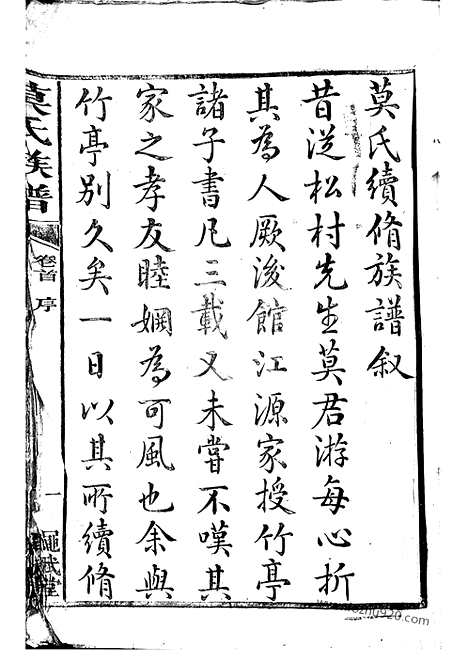 莫氏續脩族譜叙
昔從松村先生莫君游每心折
其為人厥後館江源家授竹亭
諸子書凡三載又未嘗不嘆其
家之孝友睦婣為可風也余與
竹亭別久矣一日以其所續脩
莫氏族譜
卷首
序
一